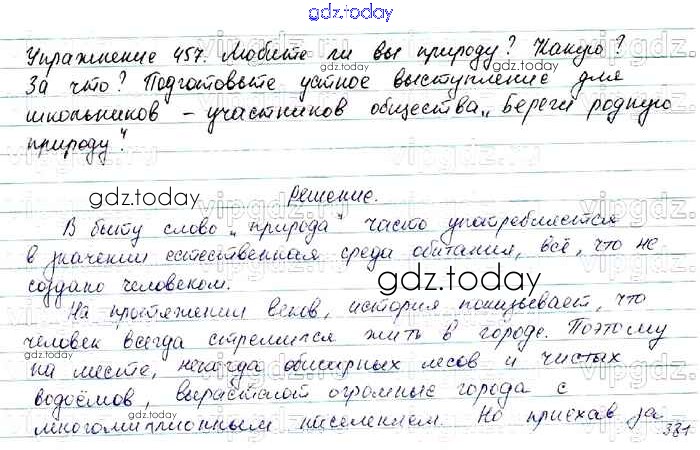 gdz.today
Упражнение 457. Любите ли вы природу? Какую?
За что? Подготовьте устное выступление для
школьников – участников общества „Береги родную
природу".
gdz.today
Решение.
В быту слово „природа" часто употребляется
в значении естественная среда обитания, всё, что не
создано человеком.
gdz.today
На протяжении веков, история показывает, что
человек всегда стремился жить в городе. Поэтому
на месте, некогда обширных лесов и чистых
водоёмов, вырастают огромные города с
многомиллионным населением. Но приехав за
381
gdz.today
gdz.today
gdz.today
gdz.today
vipgdz.ru
vipgdz.ru